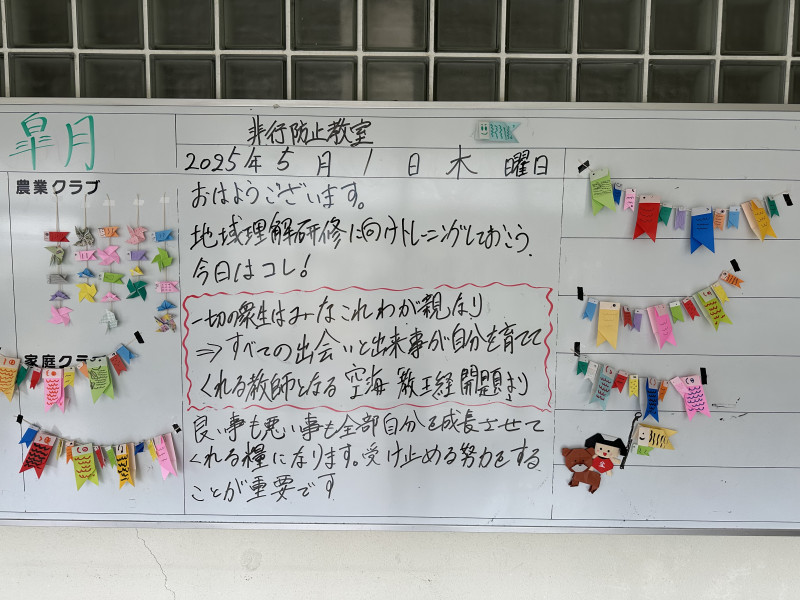 皐月
非行防止教室
2025年5月1日木曜日
農業クラブ
家庭クラ
おはようございます。
地域理解研修に向けトレーニングしておこう。
今日はコレ!
一切の衆生はみなこれわが親なり
⇒すべての出会いと出来事が自分を育てて
くれる教師となる 空海 教王経開題より
良い事も悪い事も全部自分を成長させて
くれる糧になります。受け止める努力をする
ことが重要です